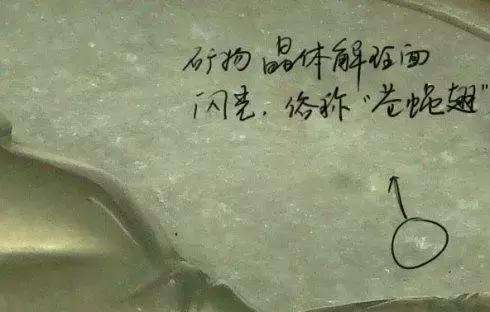 矿物晶体解理面
闪亮．俗称“苍蝇翅”